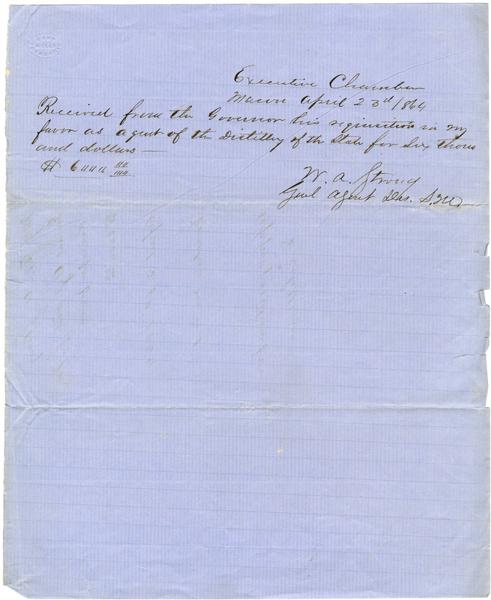 Executive Chamber
Macon April 23rd 1864
Received from the Governor his requisition in my
favor as agent of the Distillery of the State for Six Thous
and dollars —
$ 6000 00/100
W. A. Strong
Genl Agent